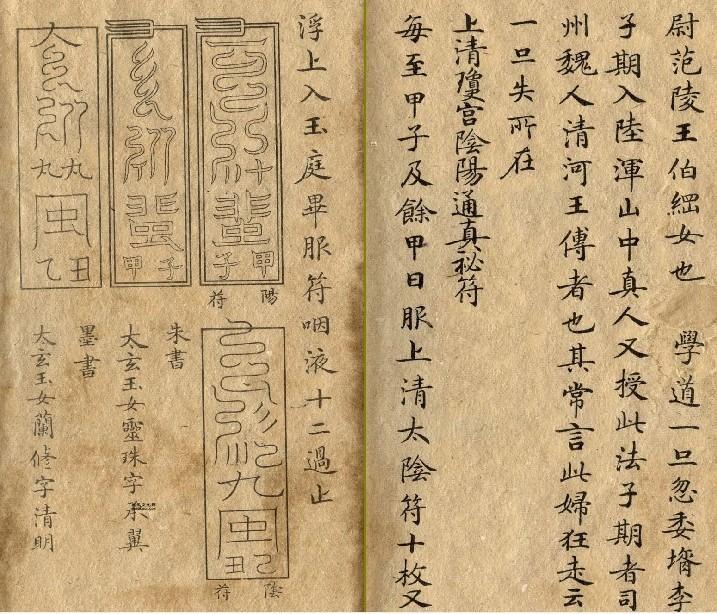 尉范陵王伯綱女也 學道一旦忽委壻李
子期入陸渾山中真人又授此法子期者司
州魏人清河王傳者也其常言此婦狂走云
一旦失所在
上清瓊宮陰陽通真秘符
每至甲子及餘甲日服上清太陰符十枚又
浮上入玉庭畢服符咽液十二過止
甲子
陽符
九
己丑
陰符
朱書
子甲
太玄玉女靈珠字承翼
墨書
九九
丑乙
太玄玉女蘭修字清明